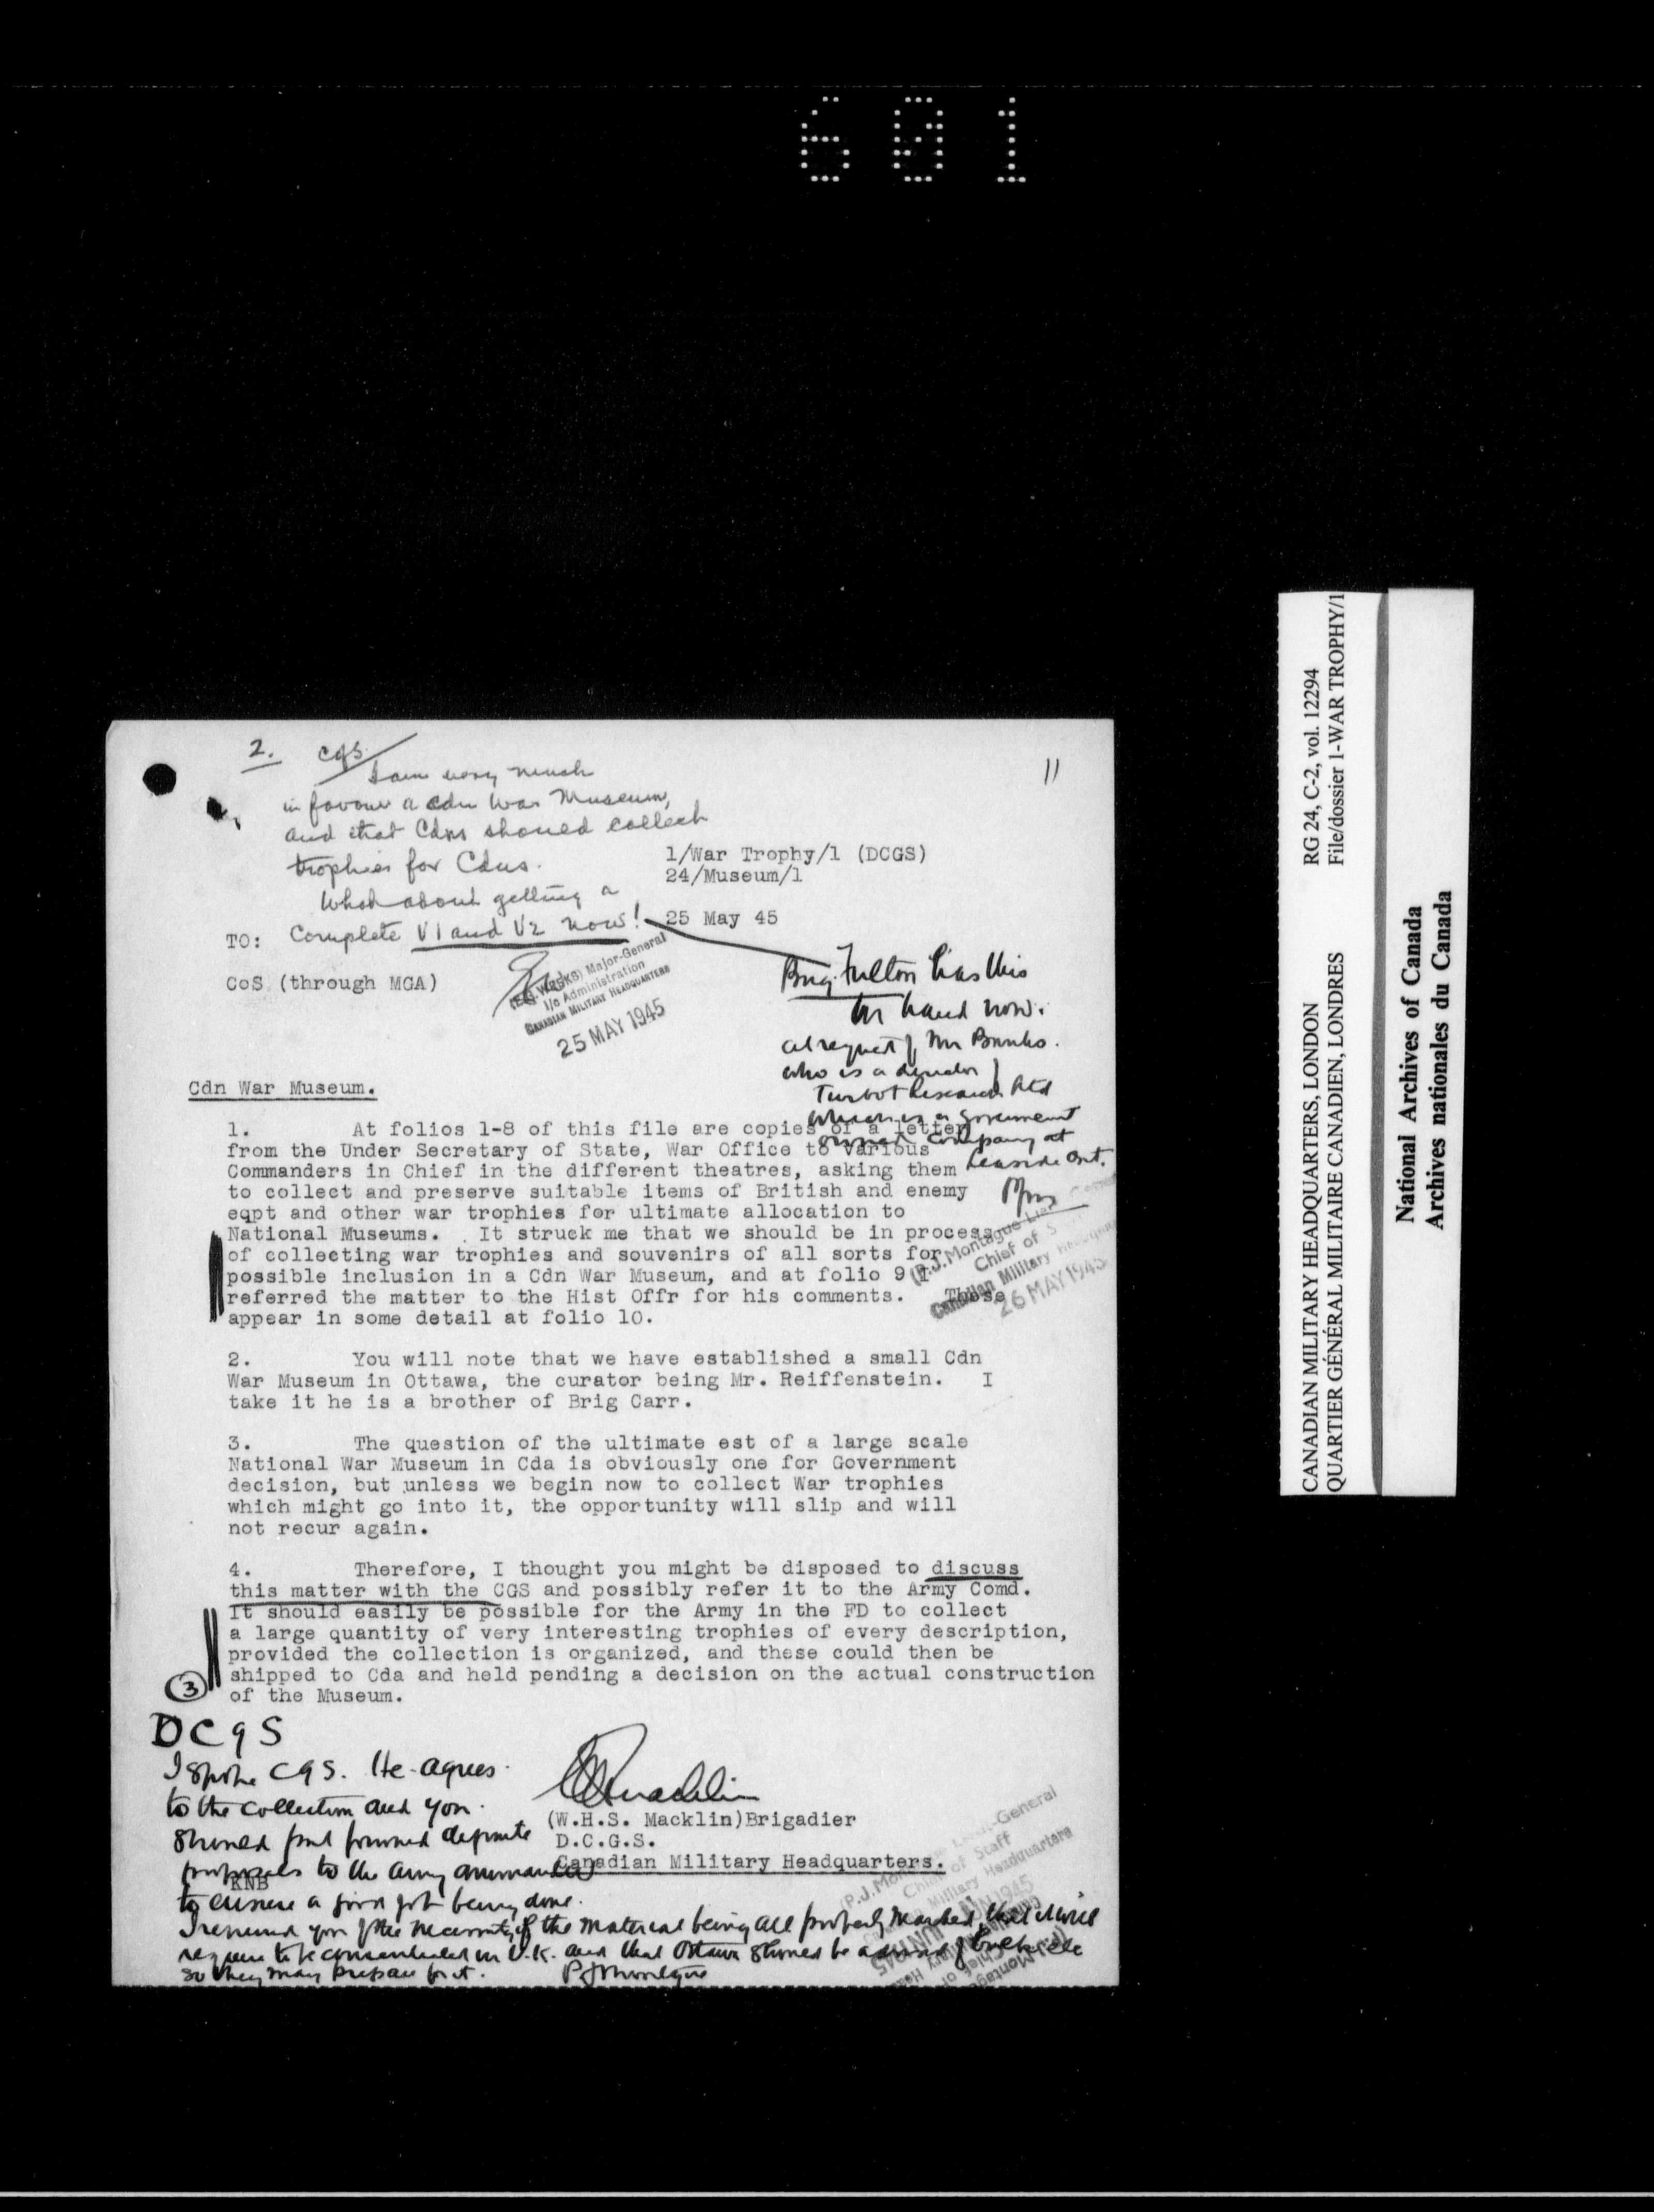 601
2. CGS
I am very much
in favour a Cdn War Museum,
and that Cdns should collect
trophies for Cdns.
What about getting a
Complete V1 and V2 now!
11
1/War Trophy/1 (DCGS)
24/Museum/1
25 May 45
TO:
CoS (through MGA)
Major-General
i/c Administration
CANADIAN MILITARY HEADQUARTERS
25 MAY 1945
Brig. Fulton has this
in hand now.
at request of Mr Banks.
who is a director of
Turbot Research Ltd
which is a government
owned company at
Leaside Ont.
(P.J. Montague
Chief of
Canadian Military
26 MAY 1945
Cdn War Museum.
1. At folios 1-8 of this file are copies of a letter
from the Under Secretary of State, War Office to various
Commanders in Chief in the different theatres, asking them
to collect and preserve suitable items of British and enemy
eqpt and other war trophies for ultimate allocation to
National Museums. It struck me that we should be in process
of collecting war trophies and souvenirs of all sorts for
possible inclusion in a Cdn War Museum, and at folio 9 I
referred the matter to the Hist Offr for his comments. Those
appear in some detail at folio 10.
2. You will note that we have established a small Cdn
War Museum in Ottawa, the curator being Mr. Reiffenstein. I
take it he is a brother of Brig Carr.
3. The question of the ultimate est of a large scale
National War Museum in Cda is obviously one for Government
decision, but unless we begin now to collect War trophies
which might go into it, the opportunity will slip and will
not recur again.
4. Therefore, I thought you might be disposed to discuss
this matter with the CGS and possibly refer it to the Army Comd.
It should easily be possible for the Army in the FD to collect
a large quantity of very interesting trophies of every description,
provided the collection is organized, and these could then be
shipped to Cda and held pending a decision on the actual construction
of the Museum.
3
DCGS
I spoke CGS. He agrees
to the collection and you
should put forward definite
proposals to the Army Commander
to ensure a good job being done.
I remind you of the necessity of the material being all properly marked, that it will
require to be concentrated in U.K. and that Ottawa should be advised of bulk etc
so they may prepare for it. P J Montague
(W.H.S. Macklin)Brigadier
D.C.G.S.
Canadian Military Headquarters.
KNB
(P.J. Mon -General
Chief of Staff
Military Headquarters
JUN 1945
CANADIAN MILITARY HEADQUARTERS, LONDON
QUARTIER GÉNÉRAL MILITAIRE CANADIEN, LONDRES
RG 24, C-2, vol. 12294
File/dossier 1-WAR TROPHY/1
National Archives of Canada
Archives nationales du Canada